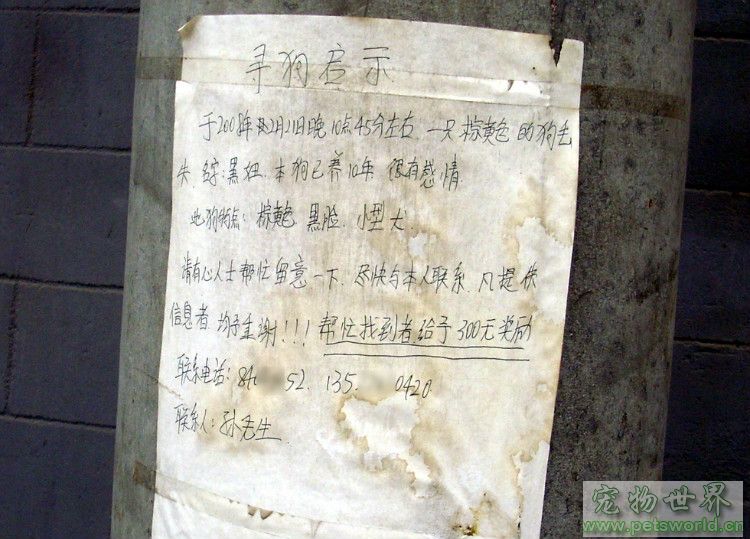 寻狗启示
于2008年2月21日晚10点45分左右 一只棕黄色的狗丢
失. 名字:黑妞. 本狗已养10年 很有感情.
此狗特点: 棕黄色 黑脸 小型犬.
请有心人士帮忙留意一下. 尽快与本人联系. 凡提供
信息者 均予重谢!!! 帮忙找到者给予300元奖励
联系电话: 84 52. 135. 0420
联系人: 孙先生
宠物世界
www.petsworld.cn